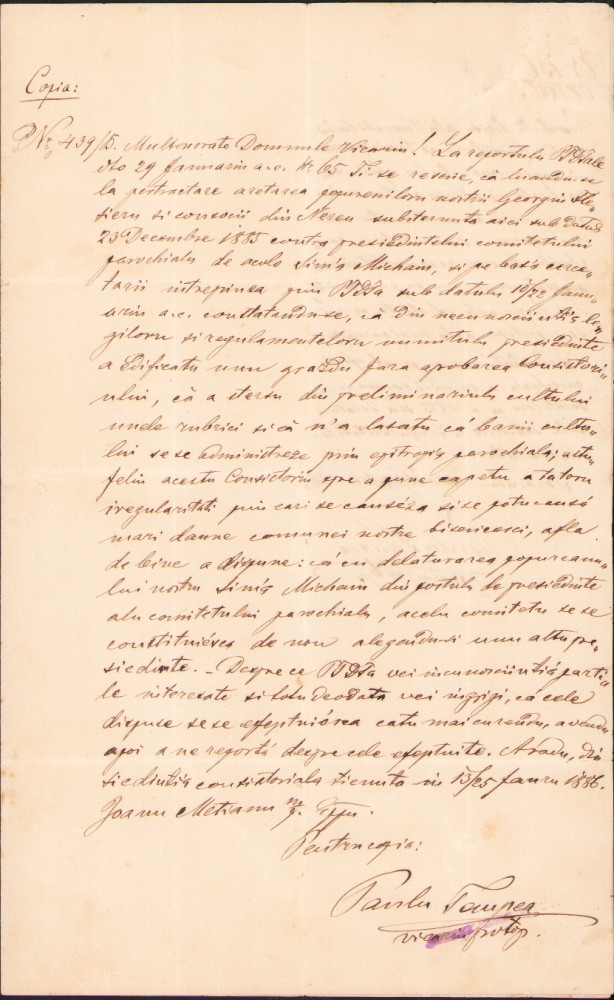 Copia:
Nr. 439/B. Multonorate Domnule Vicariu! La reportulu PTale
dto 29 Januariu a.c. Nr 65 Ti-se rescrie, că luandu-se
la pertractare aretarea poporeniloru nostrii Georgiu
si consocii din Nereu substernuta aici sub datul
23 Decembre 1885 contra presiedintelui comitetului
parochialu de acolo Simą Michaiu, si pe basa cerce-
tarii intreprinse prin PTa sub datulu 10/22 Janu-
ariu a.c. constatandu-se, că din necunoscintia le-
giloru si regulamenteloru numitulu presiedinte
a edificatu unu grajdu fara aprobarea Consistori-
ului, că a stersu din preliminariulu cultului
unele rubrici si că n'a lasatu că banii cultu-
lui se se administreze prin epitropia parochiala; astu-
feliu acestu Consistoriu spre a pune capetu a tatoru
iregularitati prin cari se causéza si se potu causá
mari daune comunei nostre bisericesci, afla
de bine a dispune: că cu delaturarea poporeanu-
lui nostru Simą Michaiu din postulu de presiedinte
alu comitetului parochialu, acelu comitetu se se
constituiésca de nou alegendu-si unu altu pre-
siedinte. - Despre ce PTa vei incunosciintiá parti-
le interesate si totu deodata vei ingrigi, că cele
dispuse se se efeptuiésca catu mai curendu, avendu
apoi a ne reportá despre cele efeptuite. Aradu, din
siedintia consistoriala tienuta in 13/25 Janru 1886.
Joanu Metianu m/p. Eppu.
Pentru copia:
Paulu Tempea
vicariu prot.